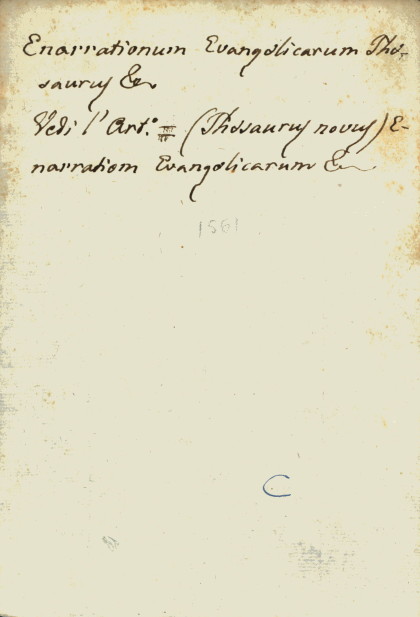 Enarrationum Evangelicarum The-
saurus &c
Vedi l' Art.º = (Thesaurus novus) E-
narratiom Evangelicarum &c
1561
C